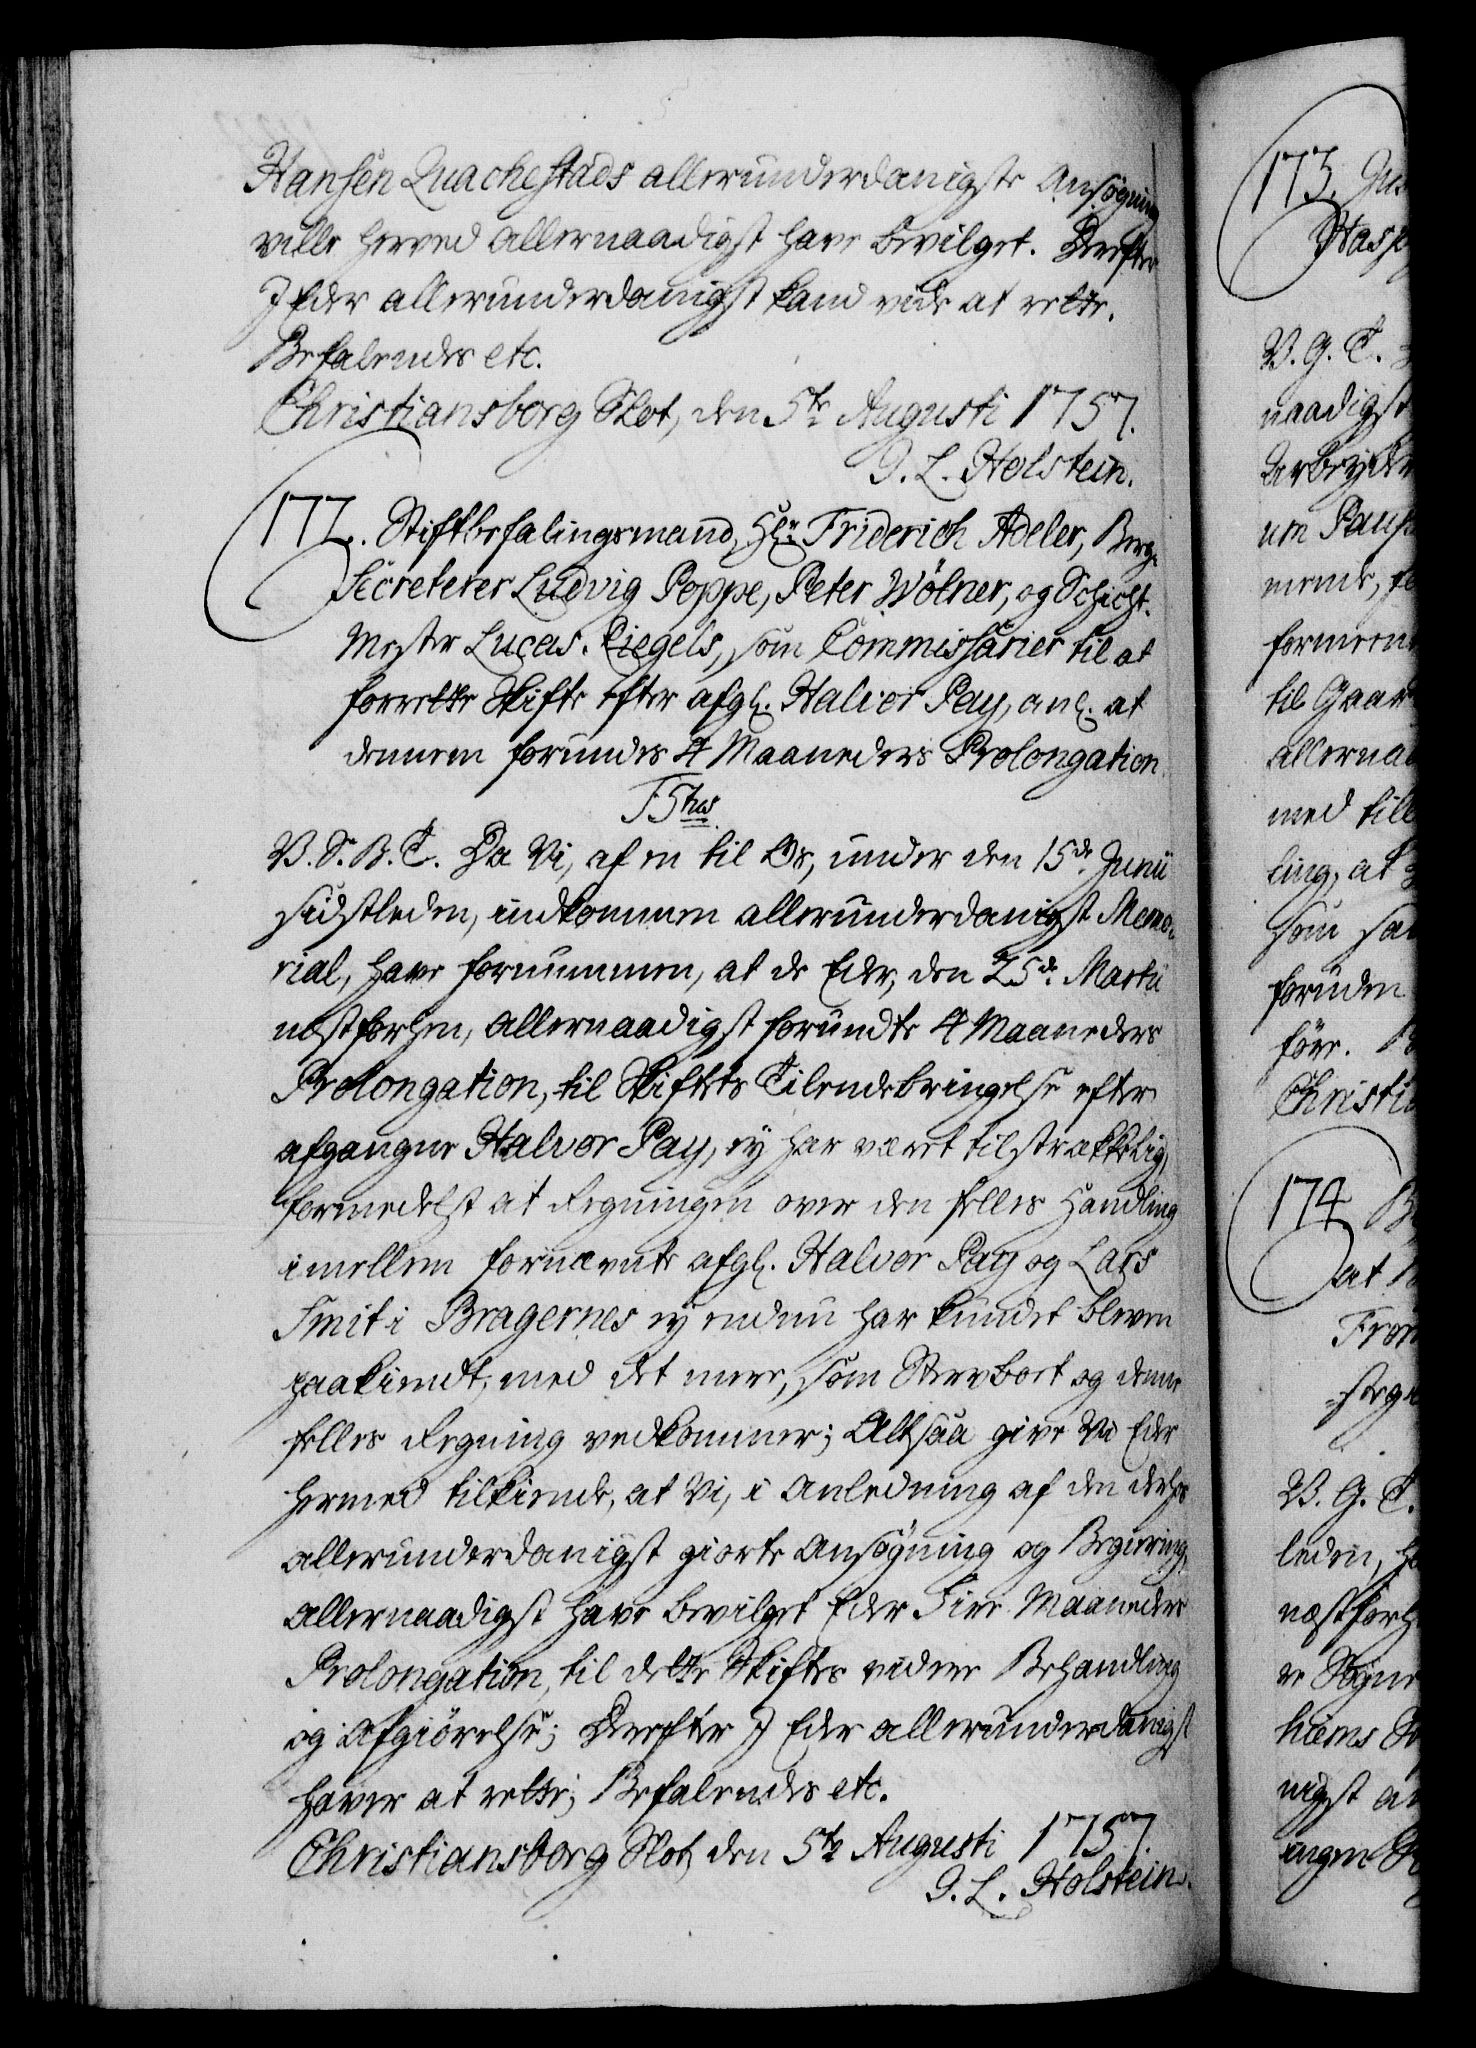 Hansen Quachestads allerunderdanigste Ansøgning
ville herved allernaadigst have bevilget. Derefter
I Eder allerunderdanigst kand vide at rette.
Befalendes etc.
Christiansborg Slot, den 5te Augusti 1757.
J. L. Holstein.
172. Stiftbefalingsmand, Hr. Friderich Adeler, Berg-
Secreterer Ludvig Poppe, Peter Wölner, og Schicht-
Mester Lucas Ziegels, som Commissarier til at
forrette Skifte efter afg. Halvor Pay, anl. at
dennem forundes 4 Maaneders Prolongation.
V. S. B. T. Da Vi, af en til Os, under den 15de Junii
sidstleden, indkommen allerunderdanigst Memo-
rial, have fornummen, at de Eder, den 25de Martii
næstforhen, allernaadigst forundte 4 Maaneders
Prolongation, til Skiftets Tilendebringelse efter
afgangne Halvor Pay, ey har været tilstrækkelig,
formedelst at Regningen over den felles Handling
imellem fornævnte afg. Halvor Pay og Lars
Smit i Bragernes ey endnu har kundet bleven
paakiendt, med det mere, som Stervboet og denne
felles Regning vedkommer; Altsaa give Vi Eder
hermed tilkiende, at Vi, i Anledning af den derhos
allerunderdanigst giorte Ansøgning og Begiering,
allernaadigst have bevilget Eder Fire Maaneders
Prolongation, til dette Skiftes videre Behandling
og Afgiørelse; Derefter I Eder allerunderdanigst
haver at rette; Befalendes etc.
Christiansborg Slot, den 5te Augusti 1757.
J. L. Holstein.
173.
V. G. T.
naadigst
um
til Gaar
med till
ling, at
som
foruden
føre.
Christia
174
at
V. G. T.
leden,
næstforh